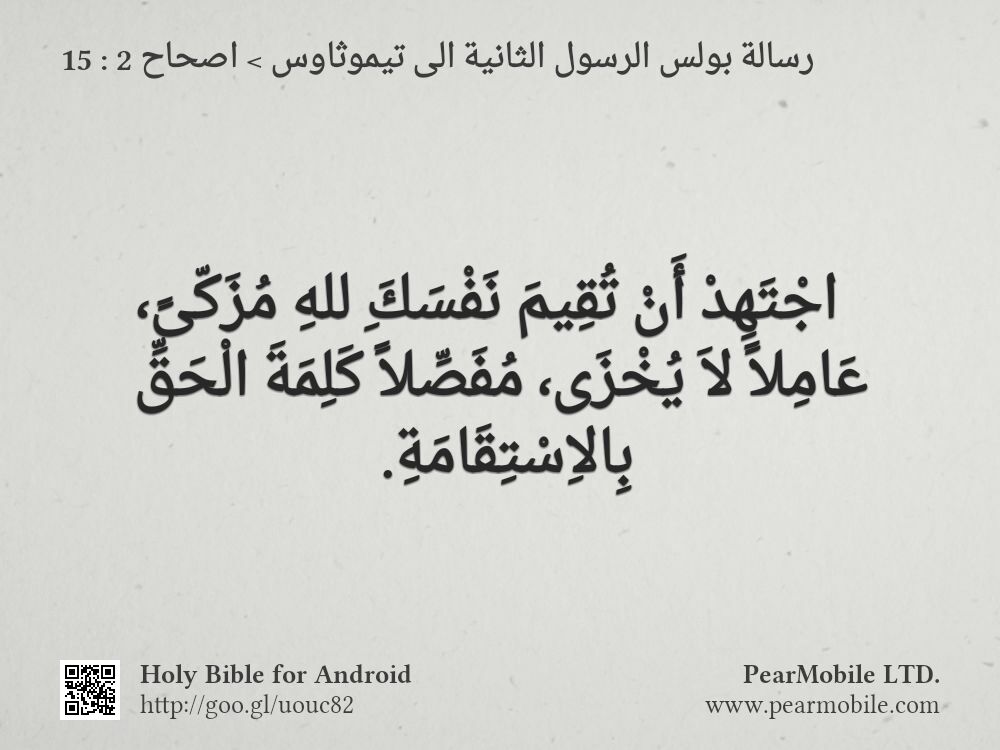 رسالة بولس الرسول الثانية الى تيموثاوس > اصحاح 2 : 15
اجْتَهِدْ أَنْ تُقِيمَ نَفْسَكَ للهِ مُزَكّىً،
عَامِلاً لاَ يُخْزَى، مُفَصِّلاً كَلِمَةَ الْحَقِّ
بِالاِسْتِقَامَةِ.
Holy Bible for Android
http://goo.gl/uouc82
PearMobile LTD.
www.pearmobile.com